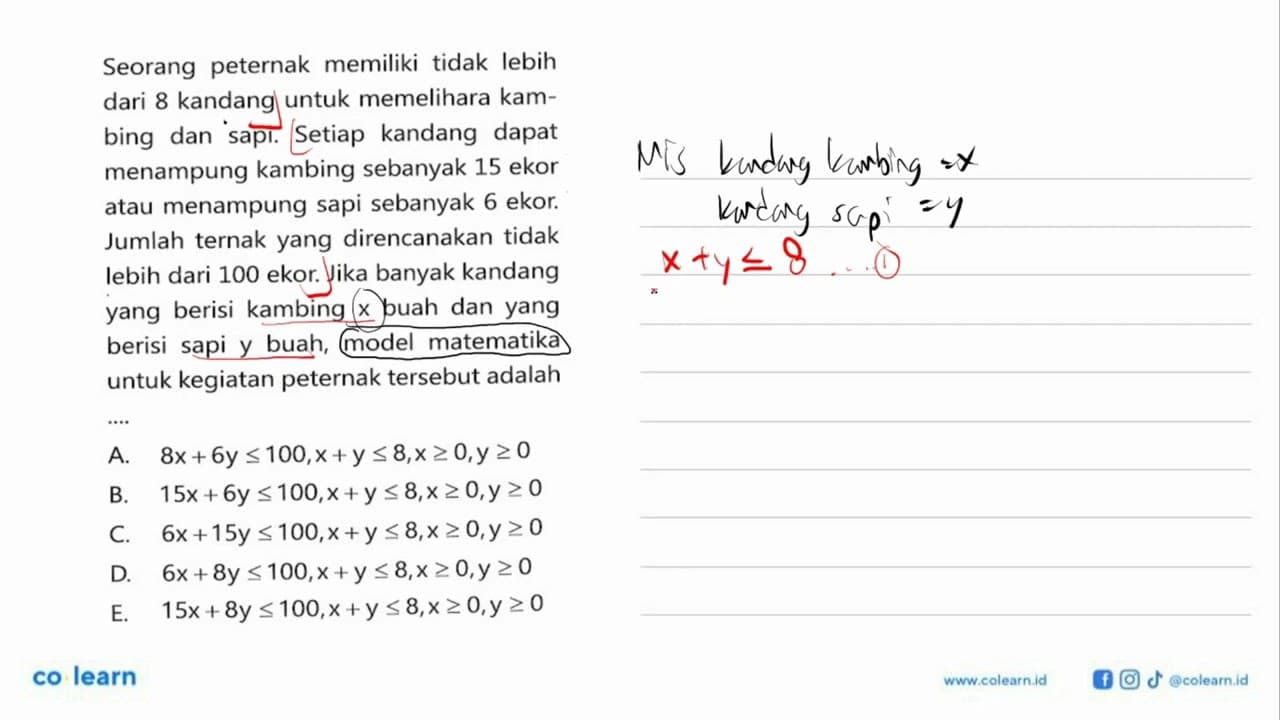 Seorang peternak memiliki tidak lebih
dari 8 kandang untuk memelihara kam-
bing dan sapi. Setiap kandang dapat
menampung kambing sebanyak 15 ekor
atau menampung sapi sebanyak 6 ekor.
Jumlah ternak yang direncanakan tidak
lebih dari 100 ekor. Jika banyak kandang
yang berisi kambing x buah dan yang
berisi sapi y buah, model matematika
untuk kegiatan peternak tersebut adalah
....
A. 8x + 6y ≤ 100, x + y ≤ 8, x ≥ 0, y ≥ 0
B. 15x + 6y ≤ 100, x + y ≤ 8, x ≥ 0, y ≥ 0
C. 6x + 15y ≤ 100, x + y ≤ 8, x ≥ 0, y ≥ 0
D. 6x + 8y ≤ 100, x + y ≤ 8, x ≥ 0, y ≥ 0
E. 15x + 8y ≤ 100, x + y ≤ 8, x ≥ 0, y ≥ 0
Mis kandang kambing = x
kandang sapi = y
x + y ≤ 8 .... ①
co learn
www.colearn.id
@colearn.id